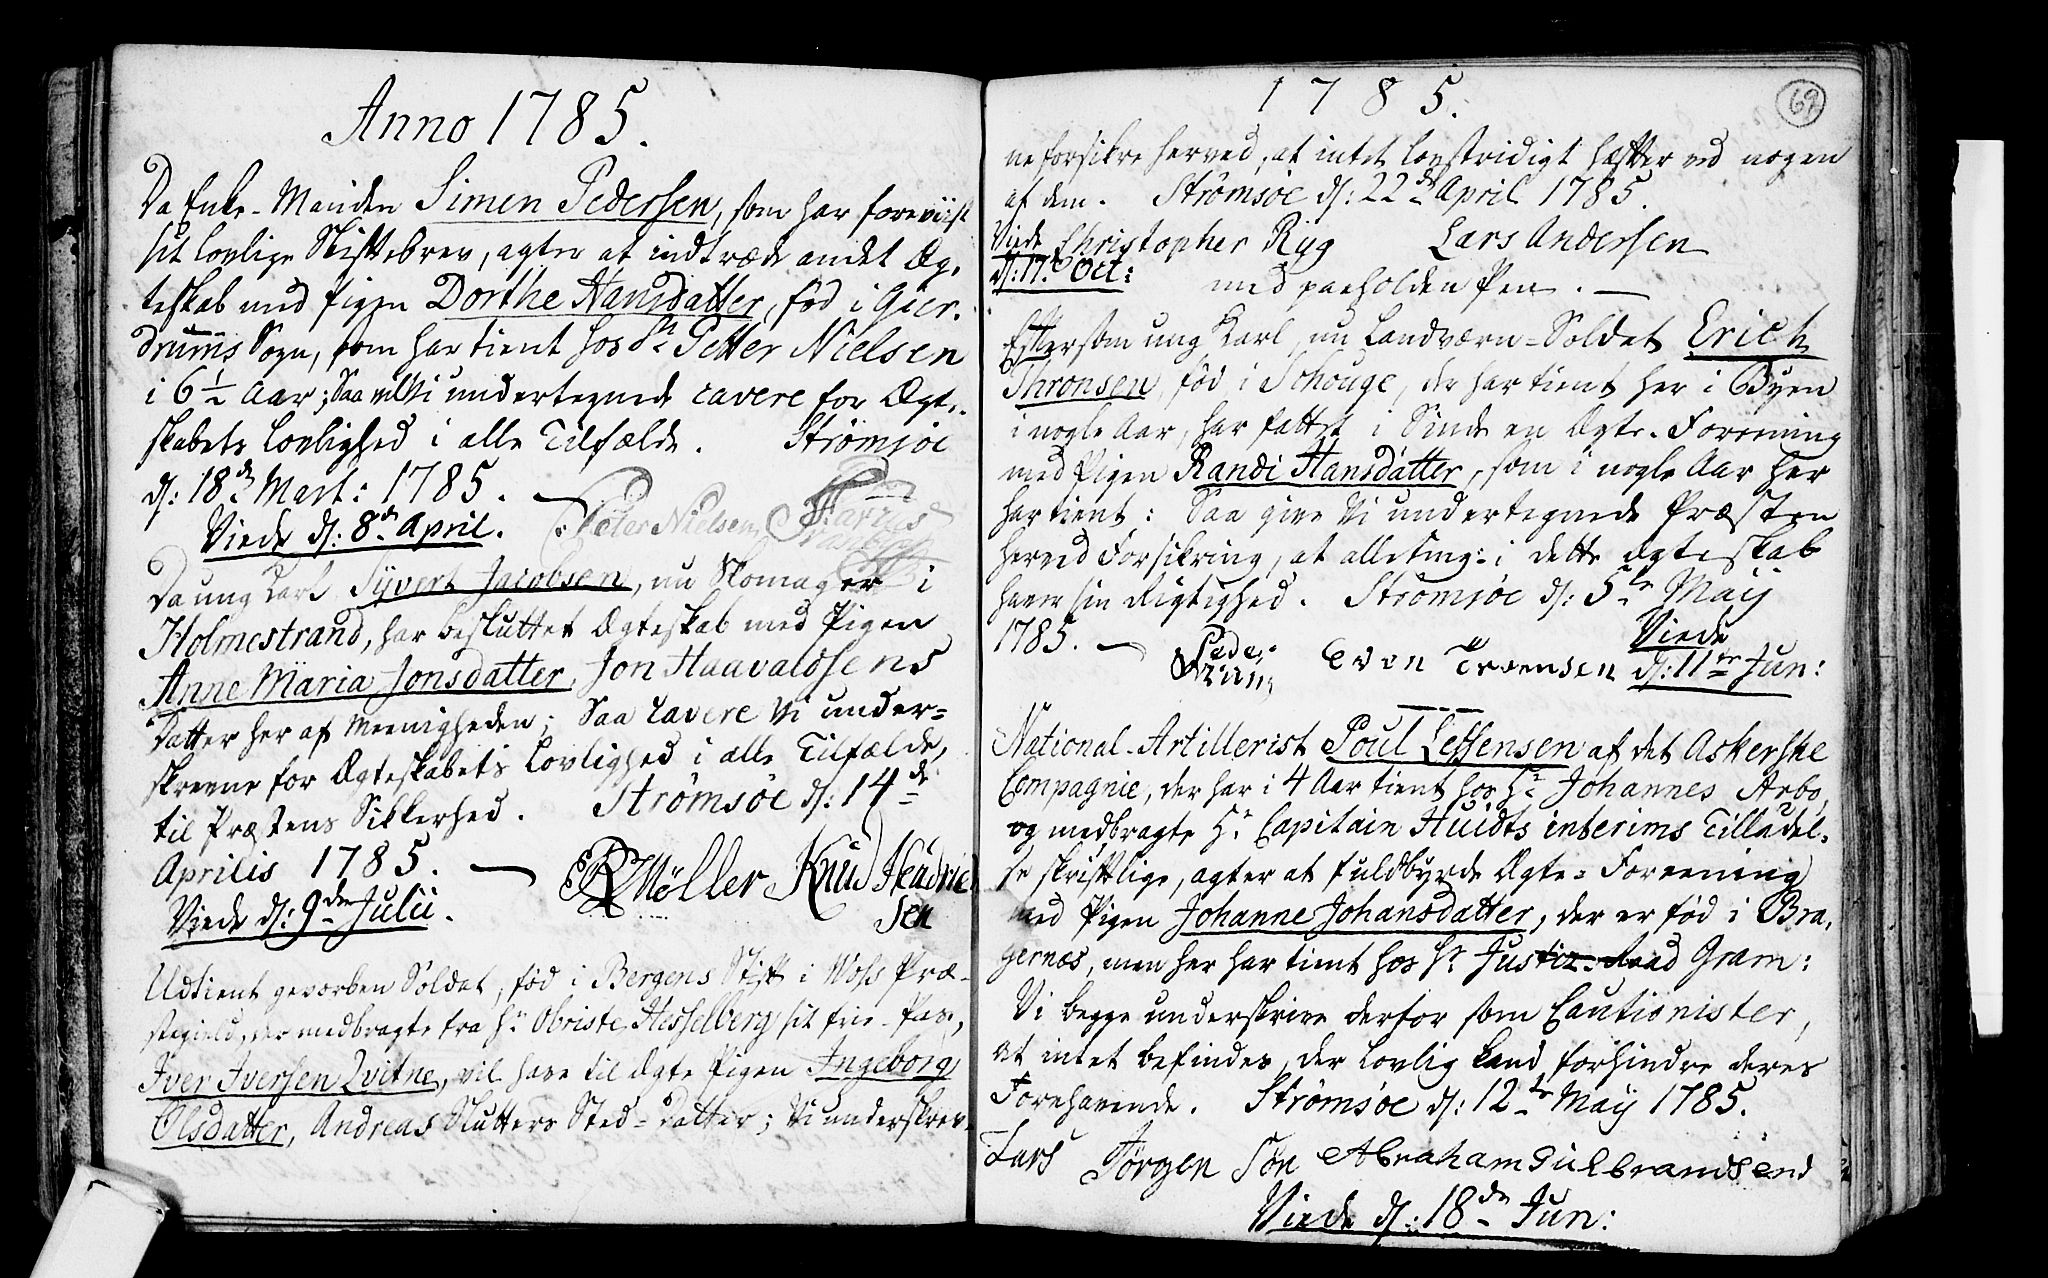 Anno 1785.
Da Enke-Manden Simen Pedersen, som har foreviist
sit lovlige Skiftebrev, agter at indtræde andet Æg-
teskab med Pigen Dorthe Hansdatter, fød i Gier-
drums Sogn, som har tient hos Sr. Petter Nielsen
i 6 1/2 Aar; Saa vil Vi undertegnede cavere for Ægte-
skabets Lovlighed i alle Tilfælde. Strømsøe
d: 18de Mart: 1785.
Viede d: 8de April. Peter Nielsen
Da ung Karl Syvert Jacobsen, nu Skomager i
Holmestrand, har besluttet Ægteskab med Pigen
Anne Maria Jonsdatter, Jon Haavaldsens
Datter her af Meenigheden; Saa cavere Vi under-
skrevne for Ægteskabets Lovlighed i alle Tilfælde,
til Præstens Sikkerhed. Strømsøe d: 14de
Aprilis 1785. Møller Knud Hendric
sen
Viede d: 9de Julii.
Udtient gevorben Soldat, fød i Bergens Stift i Woss Præ-
stegield, der medbragte fra Hr. Obriste Hesselberg sit frie-Pas,
Iver Iversen Qvitne, vil have til Ægte Pigen Ingeborg
Olsdatter, Andreas Slutters Sted-Datter; Vi underskrev-
1785.
69
ne forsikre herved, at intet lovstridigt hæfter ved nogen
af dem. Strømsøe d: 22de April 1785.
Viede Christopher Ryg Lars Andersen
d: 17. Oct: med paaholden Pen.
Eftersom ung Karl, nu Landværn-Soldat Erich
Thronsen, fød i Schouge, der har tient her i Byen
i nogle Aar, har fattet i Sinde en Ægte-Forening
med Pigen Randi Hansdatter, som i nogle Aar her
har tient: Saa give Vi undertegnede Præsten
herved Forsikring, at alle ting i dette Ægteskab
haver sin Rigtighed. Strømsøe d: 5te Maij
1785. Viede
Even d: 11te Jun:
National-Artillerist Poul Leffensen af det Askerske
Compagnie, der har i 4 Aar tient hos Hr. Johannes Arbo,
og medbragte Hr. Capitain Huidts interims Tilladel-
se skriftlige, agter at fuldbyrde Ægte-Foreening
med Pigen Johanne Johansdatter, der er fød i Bra-
gernæs, men her har tient hos Hr. Justiz-Raad Gram:
Vi begge underskrive derfor som Cautionister,
at intet befindes, der lovlig kand forhindre deres
Forehavende. Strømsøe d: 12te Maij 1785.
Lars Jørgen Søn Abraham Gulbrandsend
Viede d: 18de Jun: